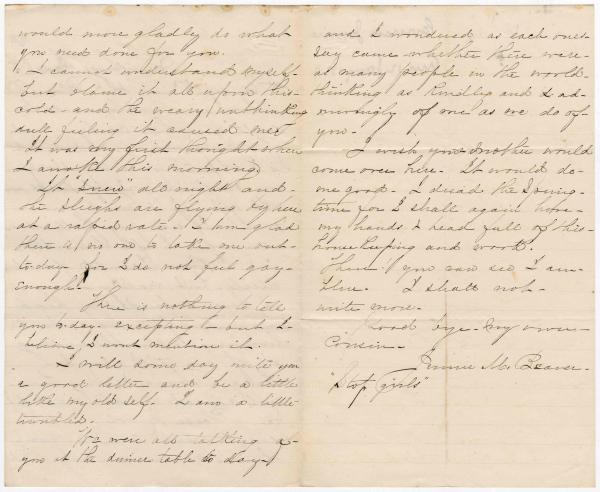 would more gladly do what
you need done for you.
I cannot understand myself
but blame it all upon this
cold - and the weary unthinking
dull feeling it caused me.
It was my first thought when
I awoke this morning.
It "snew" all night and
the sleighs are flying by here
at a rapid rate. I am glad
there is no one to take me out
to-day for I do not feel gay
enough.
There is nothing to tell
you to-day excepting - but I
believe I wont mention it.
I will some day write you
a good letter and be a little
like my old self. I am a little
troubled.
We were all talking of
you at the dinner table to day
and I wondered as each ones
say came whether there were
as many people in the world
thinking as kindly and
of me as we do of
you.
I wish you mother would
come over here. It would do
me good. I dread the Spring
time for I shall again have
my hands & head full of this
house keeping and work.
There! you can see I am
blue. I shall not
write more.
Good bye - my own
Cousin -
M. Beaver -
"Stop girls"